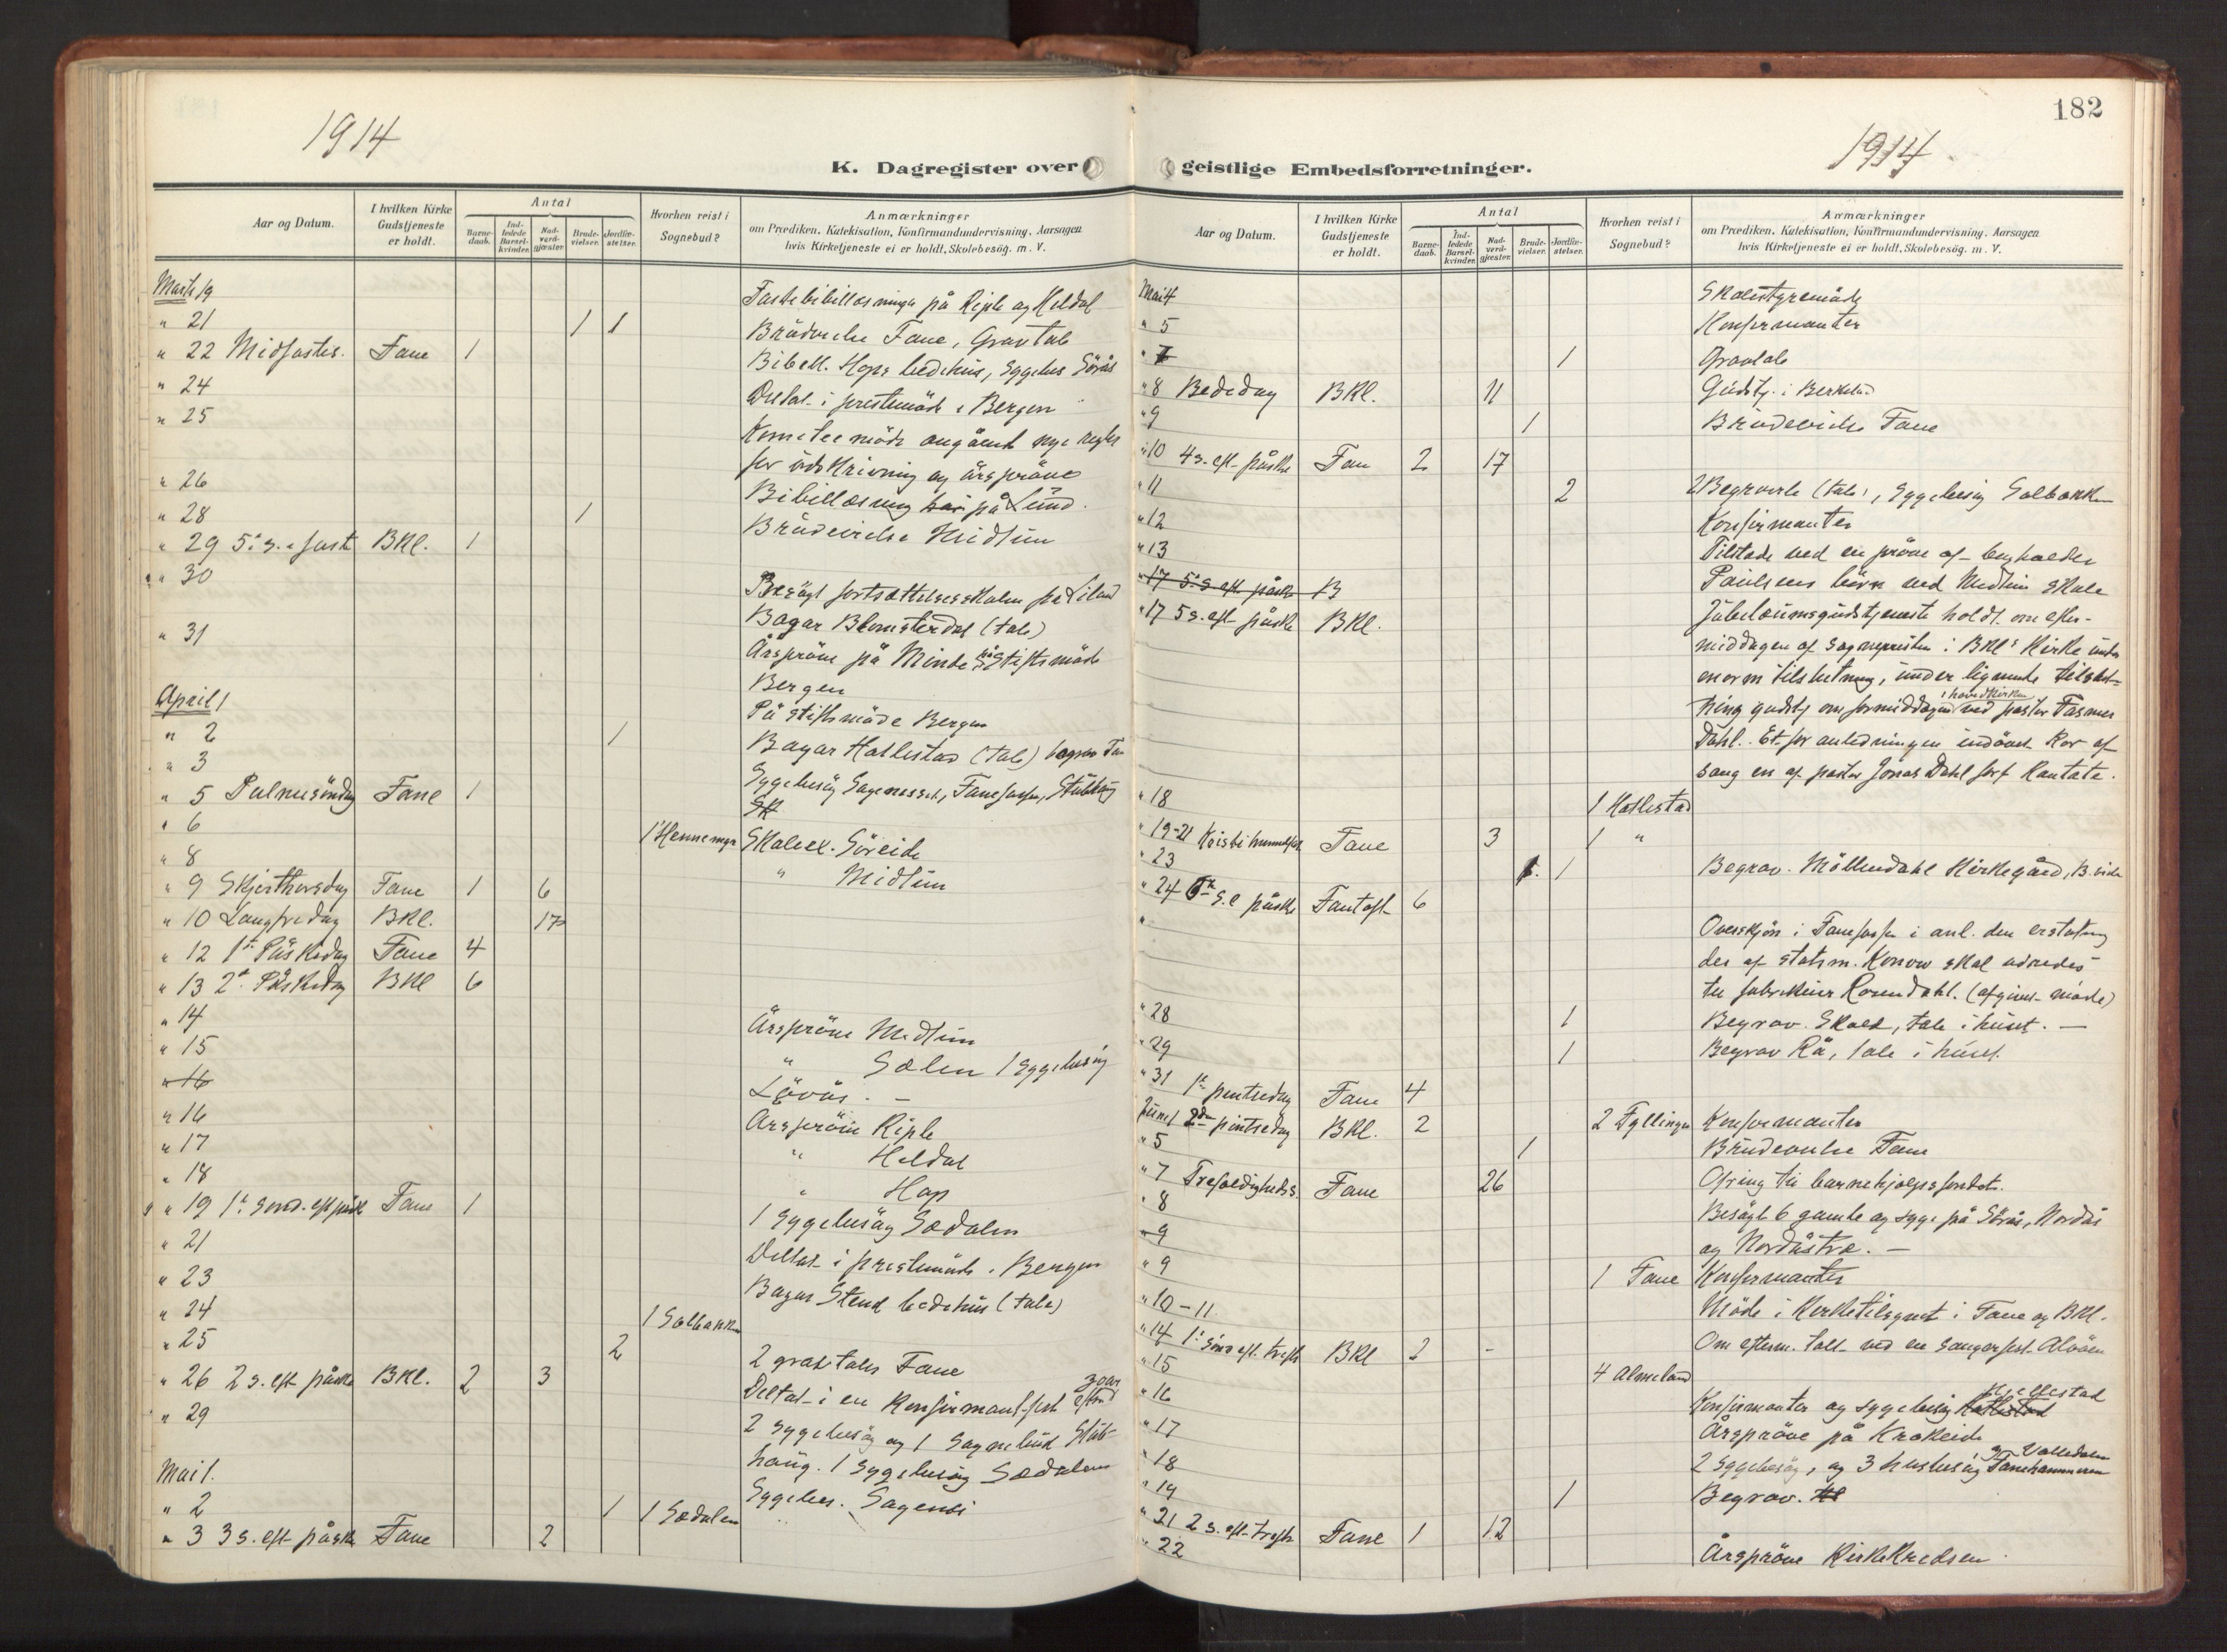 1914
K. Dagregister over
Aar og Datum.
I hvilken Kirke Gudstjeneste er holdt.
Antal
Barnedaab.
Indledede Barselkvinder.
Nadverdgjæster.
Brudevielser.
Jordfæstelser.
Hvorhen reist i Sognebud?
Anmærkninger
om Prædiken, Katekisation, Konfirmandundervisning. Aarsagen
hvis Kirketjeneste ei er holdt, Skolebesög. m. V.
Marts 19 på Riple og Heldal
" 21 1 1 Brudvielse Fane, Gravtale
" 22 Midfaste Fane 1 Hope bedehus, Sörås
" 24 Deltat i prestemöde i Bergen
" 25 möde angående nye regler
for udskrivning og årspröve
" 26 Bibellæsning på Lund.
" 28 1 Brudevielse Midtun
" 29 5. s. i faste BKl. 1
" 30 Besögt fortsættelsesskolen på Liland
Basar Blomsterdal (tale)
" 31 Årspröve på Minde på Stiftsmöde
Bergen
April 1 På stiftsmöde Bergen
" 2 1 Basar Hatlestad (tale)
" 3 Sygebesög
" 5 Palmesöndag Fane 1
" 6 1 Hennemyr Skoleex. Söreide
" 8 " Midtun
" 9 Skjærthorsdag Fane 1 6
" 10 Langfredag BKl. 17
" 12 1st Påskedag Fane 4
" 13 2d Påskedag BKl 6
" 14 Årspröve Midtun
" 15 " Sælen 1 Sygebesög
" 16
" 16 Lövås. -
" 17 Årspröve Riple
" 18 " Heldal
" 19 1. Sönd. eft påske Fane 1 " Hop
" 21 1 Sygebesög Sædalen
" 23 Deltat i prestemöde i Bergen
" 24 1 Solbakken Basar Stend bedehus (tale)
" 25 2
" 26 2 s. eft påske BKl. 2 3 2 gravtaler Fane
" 29 Deltat i en konfirmantfest
2 sygebesög og 1
1 Sygebesög Sædalen
Mai 1.
" 2 1 1 Sædalen Sygebes.
" 3 3 s. eft påske Fane 2
182
1914
geistlige Embedsforretninger.
Aar og Datum.
I hvilken Kirke Gudstjeneste er holdt.
Antal
Barnedaab.
Indledede Barselkvinder.
Nadverdgjæster.
Brudevielser.
Jordfæstelser.
Hvorhen reist i Sognebud?
Anmærkninger
om Prædiken, Katekisation, Konfirmandundervisning. Aarsagen
hvis Kirketjeneste ei er holdt, Skolebesög. m. V.
Mai 4 Skolestyremöde
" 5 Konfirmanter
" 7 1 Gravtale
" 8 Bededag BKl. 11 Gudstj. i
" 9 1 Brudevielse Fane
" 10 4 s. eft påske Fane 2 17
" 11 2 2 Begravelse (tale), Sygebesög Solbakken
" 12 Konfirmanter
" 13 Tilstede ved en pröve af
Paulsens börn ved Midtun skole
" 17 5. s eft påske B
" 17 5 s. eft påske BKl. Jubilæumsgudstjeneste holdt om efter-
middagen af sognepresten i BKls Kirke under
enorm tilslutning, under lignende tilslut-
ning gudstj om formiddagen i hovedkirken ved pastor Fasmer
Dahl. Et for anledningen indövet kor af
sang en af pastor Jonas Dahl forf kantate.
" 18 1 Hatlestad
" 19-21 Kristi himmelf Fane 3 1 "
" 23 1 Begrav. Möllendahl Kirkegård,
" 24 6 s. e påske Fantoft 6
Overskjön i Fanefossen i anl. den erstatning
der af statsm. Konow skal udredes
til fabrikeier Rosendahl. (afgivet möde)
" 28 1 Begrav. Skold, tale i huset. —
" 29 1 Begrav Rå, tale i huset.
" 31 1st pintsedag Fane 4
Juni 1 2den pintsedag BKl. 2 2 Fyllingen Konfirmanter
" 5 1 Brudevielse Fane
" 7 Trefoldigheds. Fane 26 Ofring til barnehjælpsfondet.
" 8 Besögt 6 gamle og syge på Sörås, Nordås
" 9 og Nordåstræ. —
" 9 1 Fane Konfirmanter
" 10-11. Möde i Kirketilsynet i Fane og BKl.
" 14 1. Sönd eft. trefh BKl 2 - Om efterm. talt ved en sangerfest Alvöen
" 15 4 Almeland
" 16 Konfirmanter og sygebesög Hatlestad
" 17 Årspröve på Krokeide
" 18 2 Sygebesög, og 3 husbesög Fanehammeren
" 19 1 Begrav.
" 21 2 s. eft trefh Fane 1 12
" 22 Årspröve Kirkekredsen